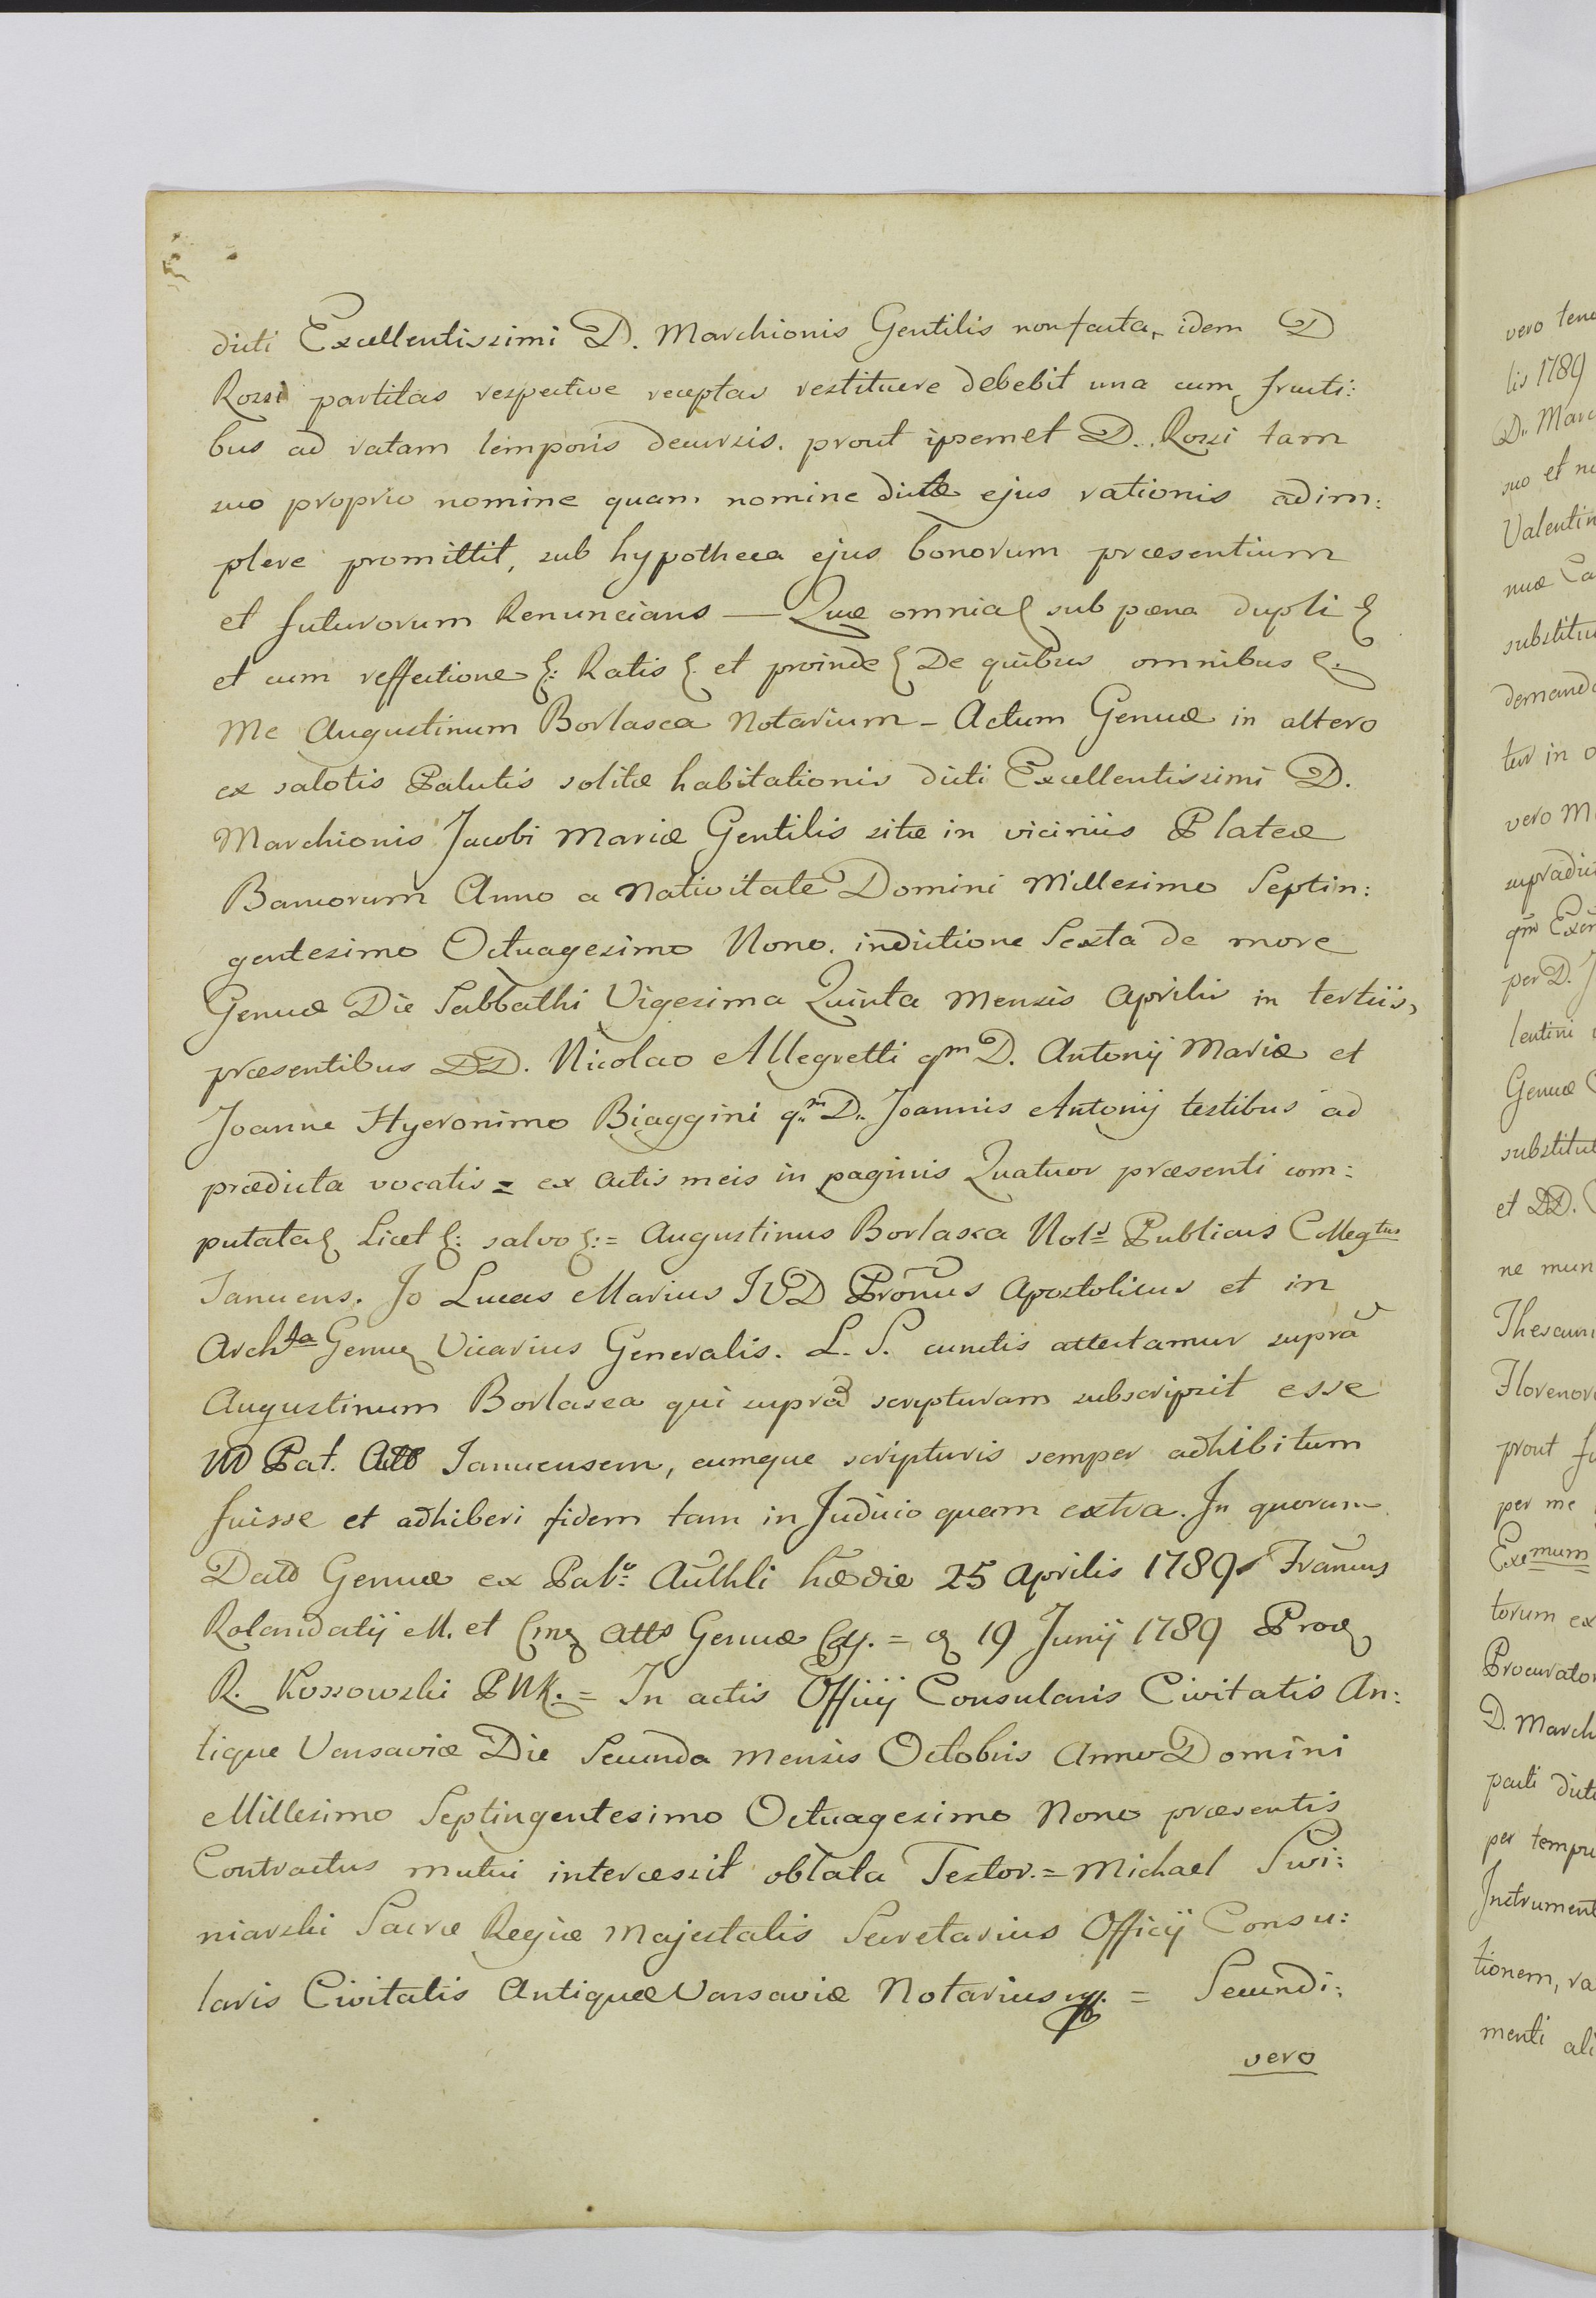 dicti Excellentissimi D. Marchionis Gentilis non facta, idem D
Rossi partitas respective receptas restituere debebit una cum fructi:
bus ad ratam temporis decursis. prout ipsemet D. Rossi tam
suo proprio nomine quam nomine dictæ ejus rationis adim:
plere promittit, sub hypotheca ejus bonorum præsentium
et futurorum Renuncians — Quæ omnia sub pœna dupli
et cum reffectione Ratis et proinde De quibus omnibus
Me Augustinum Borlasca Notarium – Actum Genuæ in altero
ex salotis Palutis solitæ habitationis dicti Excellentissimi D.
Marchionis Jacobi Mariæ Gentilis sitæ in viciniis Plateæ
Bancorum Anno a Nativitate Domini Millesimo Septin:
gentesimo Octuagesimo Nono. indictione Sexta de more
Genuæ Die Sabbathi Vigesima Quinta Mensis Aprilis in tertiis,
præsentibus DD. Nicolao Allegretti qm D. Antonij Mariæ et
Joanne Hyeronimo Biaggini qm D. Joannis Antonij testibus ad
prædicta vocatis = ex actis meis in paginis Quatuor præsenti com:
putata Licet salvo = Augustinus Borlasca Nots Publicus Collegtus
Januens. Jo Lucas Marius JUD Pronus Apostolicus et in
Archta Genuæ Vicarius Generalis. L. S. cunctis attestamur supra
Augustinum Borlasca qui supra scripturam subscripsit esse
Pat. Januensem, eumque scripturis semper adhibitum
fuisse et adhiberi fidem tam in Judicio quam extra. In quorum
Dato Genuæ ex Palo Authli hac die 25 Aprilis 1789 Francus
Rolandatij M. et Genuæ = 19 Junij 1789
R. Kossowski PNK. = In actis Officij Consularis Civitatis An:
tique Varsaviæ Die Secunda Mensis Octobris Anno Domini
Millesimo Septingentesimo Octuagesimo Nono præsentis
Contractus mutui intercessit oblata Testor. = Michael Swi:
niarski Sacræ Regiæ Majestatis Secretarius Officij Consu:
laris Civitatis Antiquæ Varsaviæ Notarius mp. = Secundi:
vero
vero
lis 1789
D. Marc
suo et
Valentin
nuæ
substitu
demand
tur in
vero
supradic
per D.
lentini
Genuæ
substitut
et DD.
ne mun
prout
per me
Exemum
torum ex
Procurator
D. March
per
Instrument
tionem,
menti